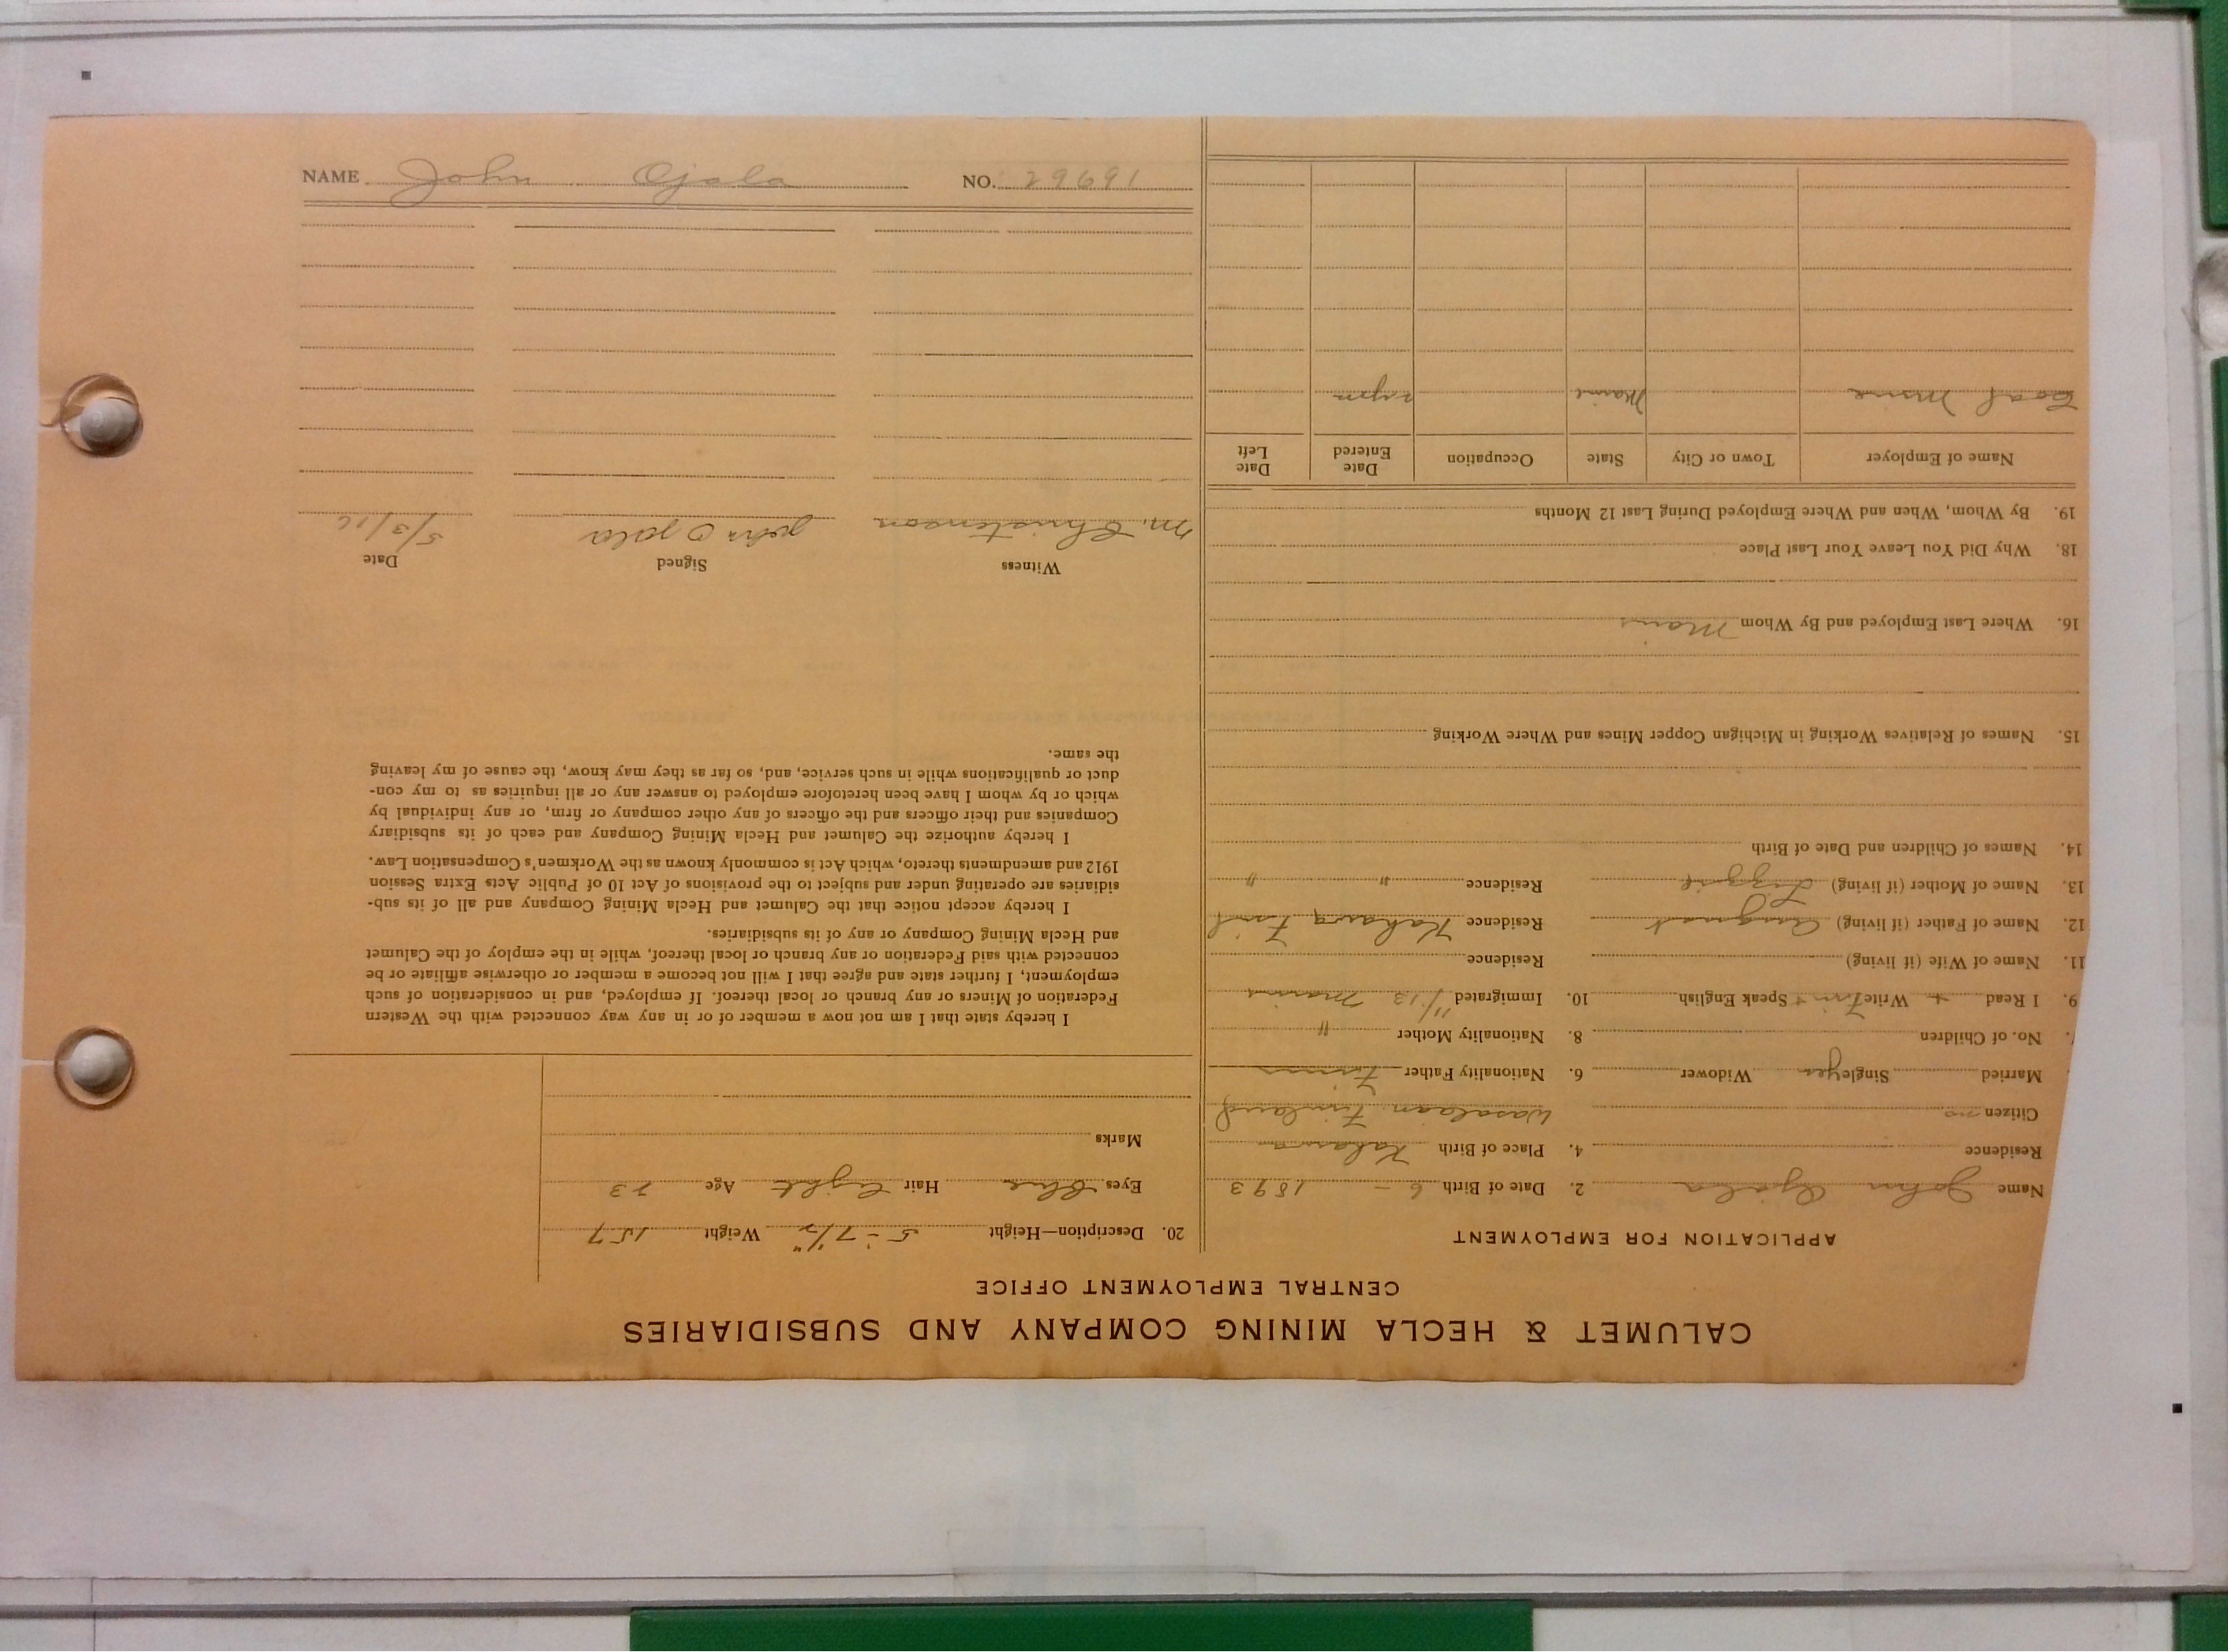 CALUMET & HECLA MINING COMPANY AND SUBSIDIARIES
CENTRAL EMPLOYMENT OFFICE
APPLICATION FOR EMPLOYMENT
Name John Ojala 2. Date of Birth 6 - 1893
Residence 4. Place of Birth Kalawa
Citizen no Wasalaan Finland
Married Single yes Widower 6. Nationality Father Finn
No. of Children 8. Nationality Mother "
9. I Read + Write Finn + Speak English 10. Immigrated 11/13
11. Name of Wife (if living) Residence
12. Name of Father (if living) August Residence Kahawa Finl
13. Name of Mother (if living) Lizzie Residence " "
14. Names of Children and Date of Birth
15. Names of Relatives Working in Michigan Copper Mines and Where Working
16. Where Last Employed and By Whom
18. Why Did You Leave Your Last Place
19. By Whom, When and Where Employed During Last 12 Months
Name of Employer Town or City State Occupation Date Entered Date Left
Coal Mine
20. Description—Height 5'-7 1/2" Weight 157
Eyes Blue Hair Light Age 23
Marks
I hereby state that I am not now a member of or in any way connected with the Western
Federation of Miners or any branch or local thereof. If employed, and in consideration of such
employment, I further state and agree that I will not become a member or otherwise affiliate or be
connected with said Federation or any branch or local thereof, while in the employ of the Calumet
and Hecla Mining Company or any of its subsidiaries.
I hereby accept notice that the Calumet and Hecla Mining Company and all of its sub-
sidiaries are operating under and subject to the provisions of Act 10 of Public Acts Extra Session
1912 and amendments thereto, which Act is commonly known as the Workmen's Compensation Law.
I hereby authorize the Calumet and Hecla Mining Company and each of its subsidiary
Companies and their officers and the officers of any other company or firm, or any individual by
which or by whom I have been heretofore employed to answer any or all inquiries as to my con-
duct or qualifications while in such service, and, so far as they may know, the cause of my leaving
the same.
Witness Signed Date
M. Christenson John Ojala 5/3/16
NAME John Ojala NO. 29691